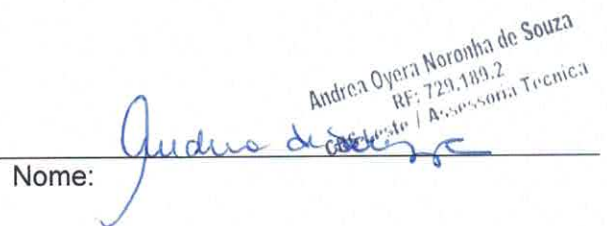 Andrea Oyera Noronha de Souza
RF: 729.189.2
/ Assessoria Tecnica
Andrea de Souza
Nome: